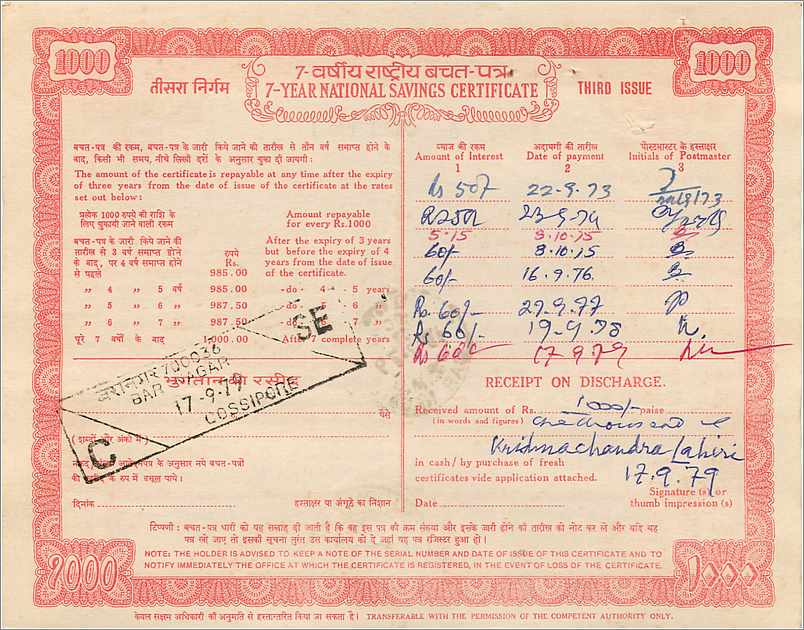 1000
1000
7-वर्षीय राष्ट्रीय बचत-पत्र
तीसरा निर्गम
7-YEAR NATIONAL SAVINGS CERTIFICATE
THIRD ISSUE
बचत-पत्र की रकम, बचत-पत्र के जारी किये जाने की तारीख से तीन वर्ष समाप्त होने के
बाद, किसी भी समय, नीचे लिखी दरों के अनुसार चुका दी जाएगी:
The amount of the certificate is repayable at any time after the expiry
of three years from the date of issue of the certificate at the rates
set out below:
प्रत्येक 1000 रुपये की राशि के
लिए चुकायी जाने वाली रकम
Amount repayable
for every Rs.1000
बचत-पत्र के जारी किये जाने की
तारीख से 3 वर्ष समाप्त होने
के बाद, पर 4 वर्ष समाप्त होने
से पहले
रुपये
Rs.
985.00
After the expiry of 3 years
but before the expiry of 4
years from the date of issue
of the certificate.
„ 4 „ 5 वर्ष 985.00 -do- 4 - 5 years
„ 5 „ 6 „ 987.50 -do- 5 - 6 „
„ 6 „ 7 „ 987.50 -do- 6 - 7 „
पूरे 7 वर्षों के बाद 1,000.00 After 7 complete years
ब्याज की रकम
Amount of Interest
1
अदायगी की तारीख
Date of payment
2
पोस्टमास्टर के हस्ताक्षर
Initials of Postmaster
3
Rs 50/- 22.9.73
5.15 8.10.75
60/- 8.10.75
60/- 16.9.76
Rs. 60/- 29.9.77
Rs 60/- 19.9.78
17.9.79
SE
700036
BAR NAGAR
17-9-79
COSSIPORE
C
भुगतान की रसीद
पैसे
(शब्दों और अंकों में)
के रूप में वसूल पाये।
दिनांक
हस्ताक्षर या अंगूठे का निशान
RECEIPT ON DISCHARGE.
Received amount of Rs. 1000/- paise
(in words and figures) One thousand
Krishnachandra Lahiri
in cash/by purchase of fresh
certificates vide application attached.
17.9.79
Signature(s) or
thumb impression(s)
Date
टिप्पणी: बचत-पत्र धारी को यह सलाह दी जाती है कि वह इस पत्र की क्रम संख्या और इसके जारी होने की तारीख को नोट कर ले और यदि यह
पत्र खो जाए तो इसकी सूचना तुरंत उस कार्यालय को दे जहां यह पत्र रजिस्टर हुआ हो।
NOTE: THE HOLDER IS ADVISED TO KEEP A NOTE OF THE SERIAL NUMBER AND DATE OF ISSUE OF THIS CERTIFICATE AND TO
NOTIFY IMMEDIATELY THE OFFICE AT WHICH THE CERTIFICATE IS REGISTERED, IN THE EVENT OF LOSS OF THE CERTIFICATE.
१०००
1000
केवल सक्षम अधिकारी की अनुमति से हस्तान्तरित किया जा सकता है। TRANSFERABLE WITH THE PERMISSION OF THE COMPETENT AUTHORITY ONLY.